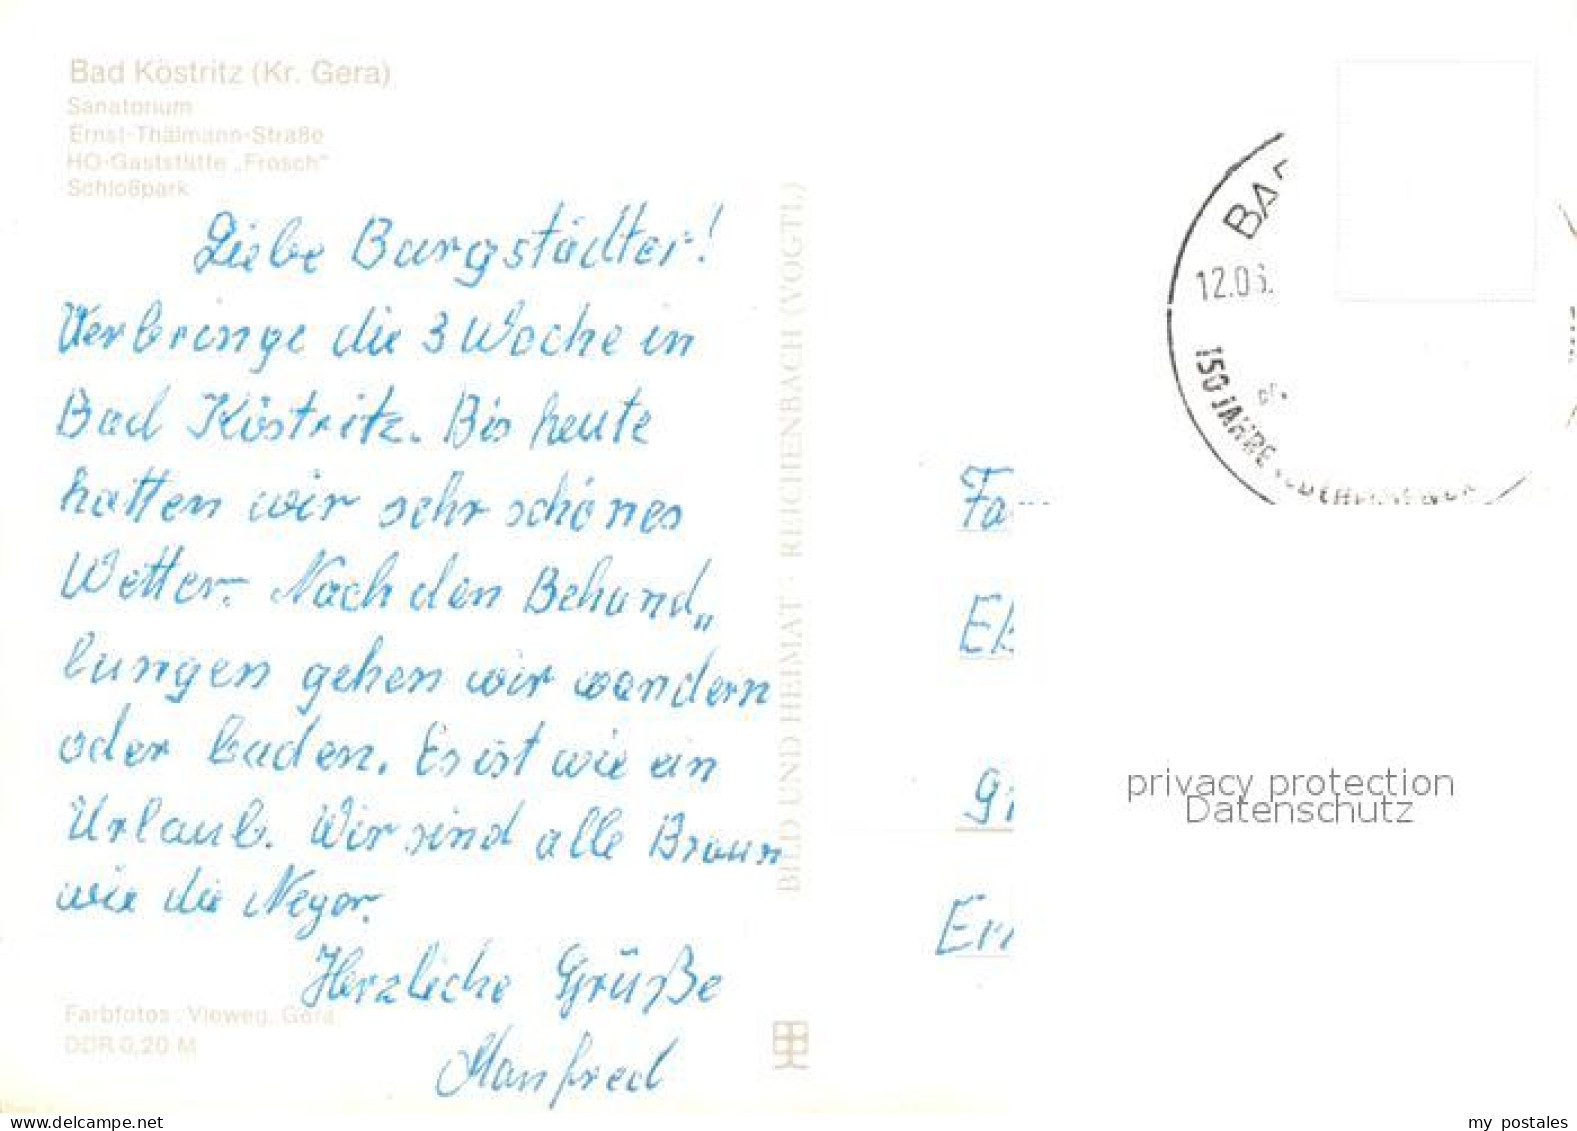 Bad Köstritz (Kr. Gera)
Sanatorium
Ernst-Thälmann-Straße
HO-Gaststätte „Frosch"
Schloßpark
Liebe Burgstädter!
Verbringe die 3 Woche in
Bad Köstritz. Bis heute
hatten wir sehr schönes
Wetter. Nach den Behand„
lungen gehen wir wandern
oder baden. Es ist wie ein
Urlaub. Wir sind alle Braun
wie die Neger.
Herzliche Grüße
Manfred
Farbfotos: Vieweg, Gera
DDR 0,20 M
BILD UND HEIMAT · REICHENBACH (VOGTL)
BAD
12.06.
150 JAHRE
Fa
Eb
Gi
Ern
privacy protection
Datenschutz
delcampe.net
my postales